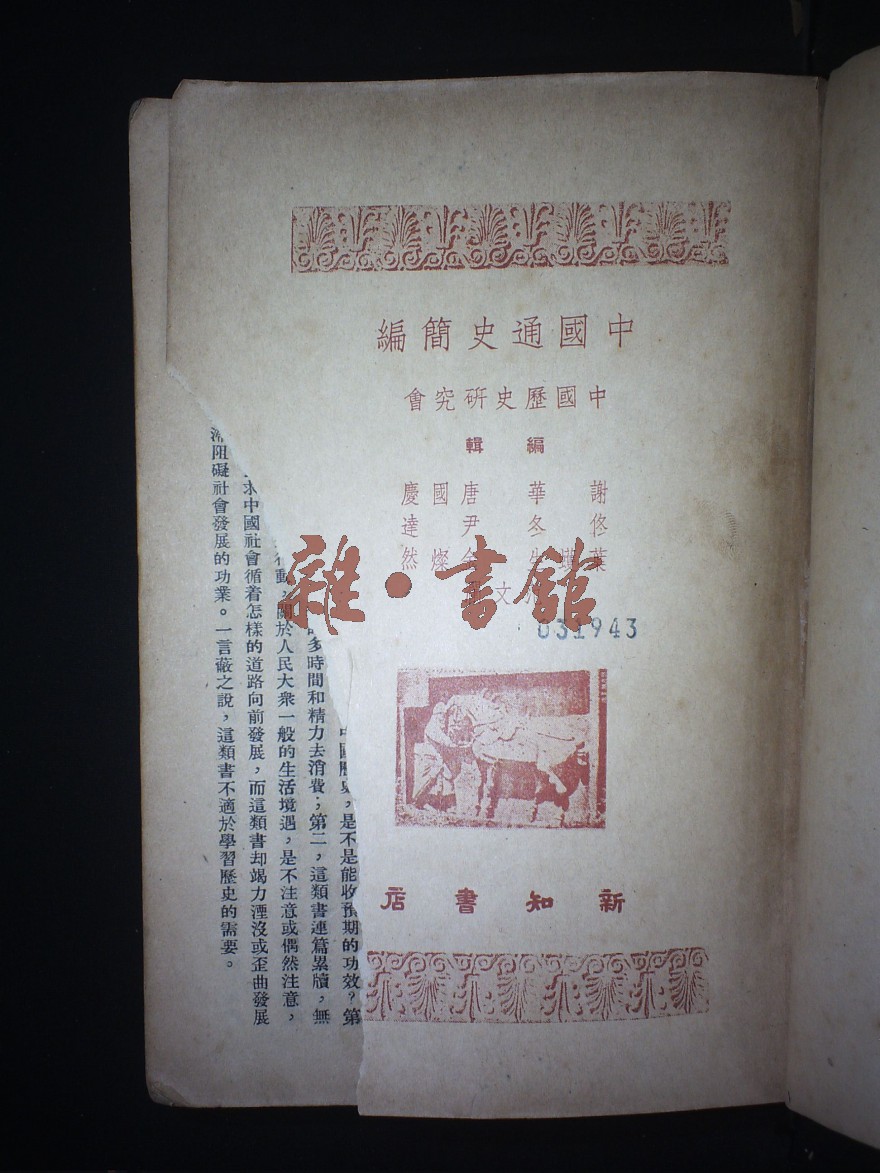 中國通史簡編
中國歷史研究會
編輯
謝華唐國慶
佟冬尹達
葉燦然
文
雜·書館
031943
新知書店
中國歷史，是不是能收預期的功效？第
多時間和精力去消費；第二，這類書連篇累牘，無
動，關於人民大衆一般的生活境遇，是不注意或偶然注意，
求中國社會循着怎樣的道路向前發展，而這類書却竭力湮沒或歪曲發展
阻礙社會發展的功業。一言蔽之說，這類書不適於學習歷史的需要。